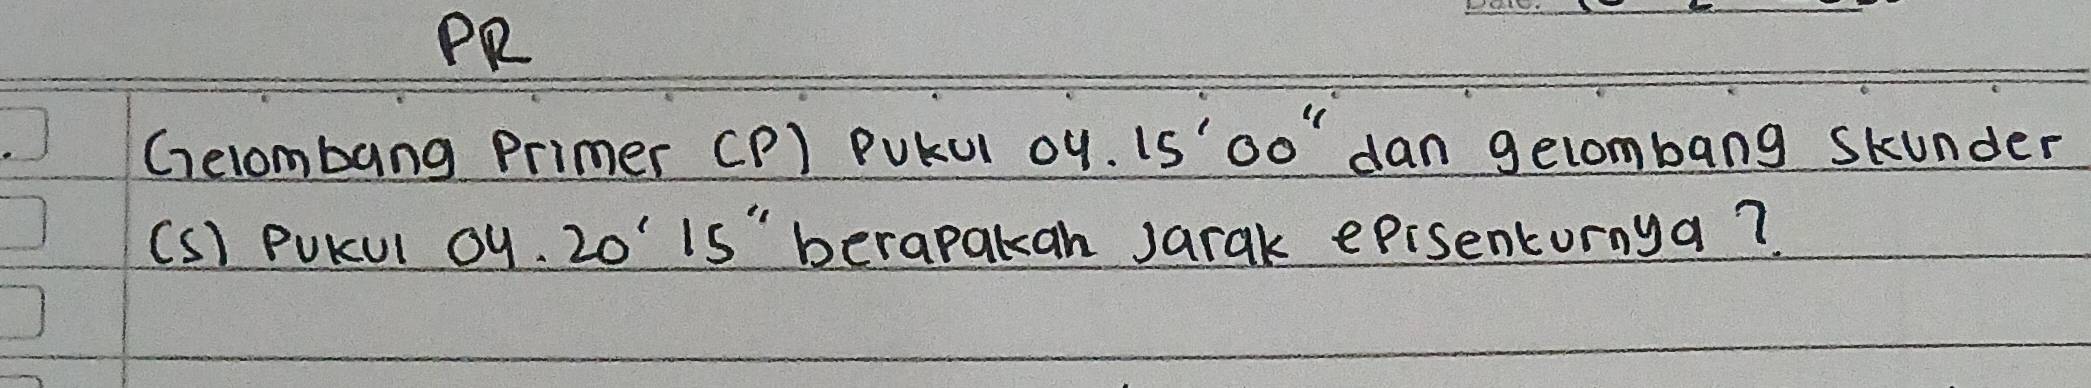 PR
Gelombang Primer (P) Pukul 04.15'00" dan gelombang Skunder
(S) Pukul 04.20'15" berapakah Jarak ePisenturnya ?